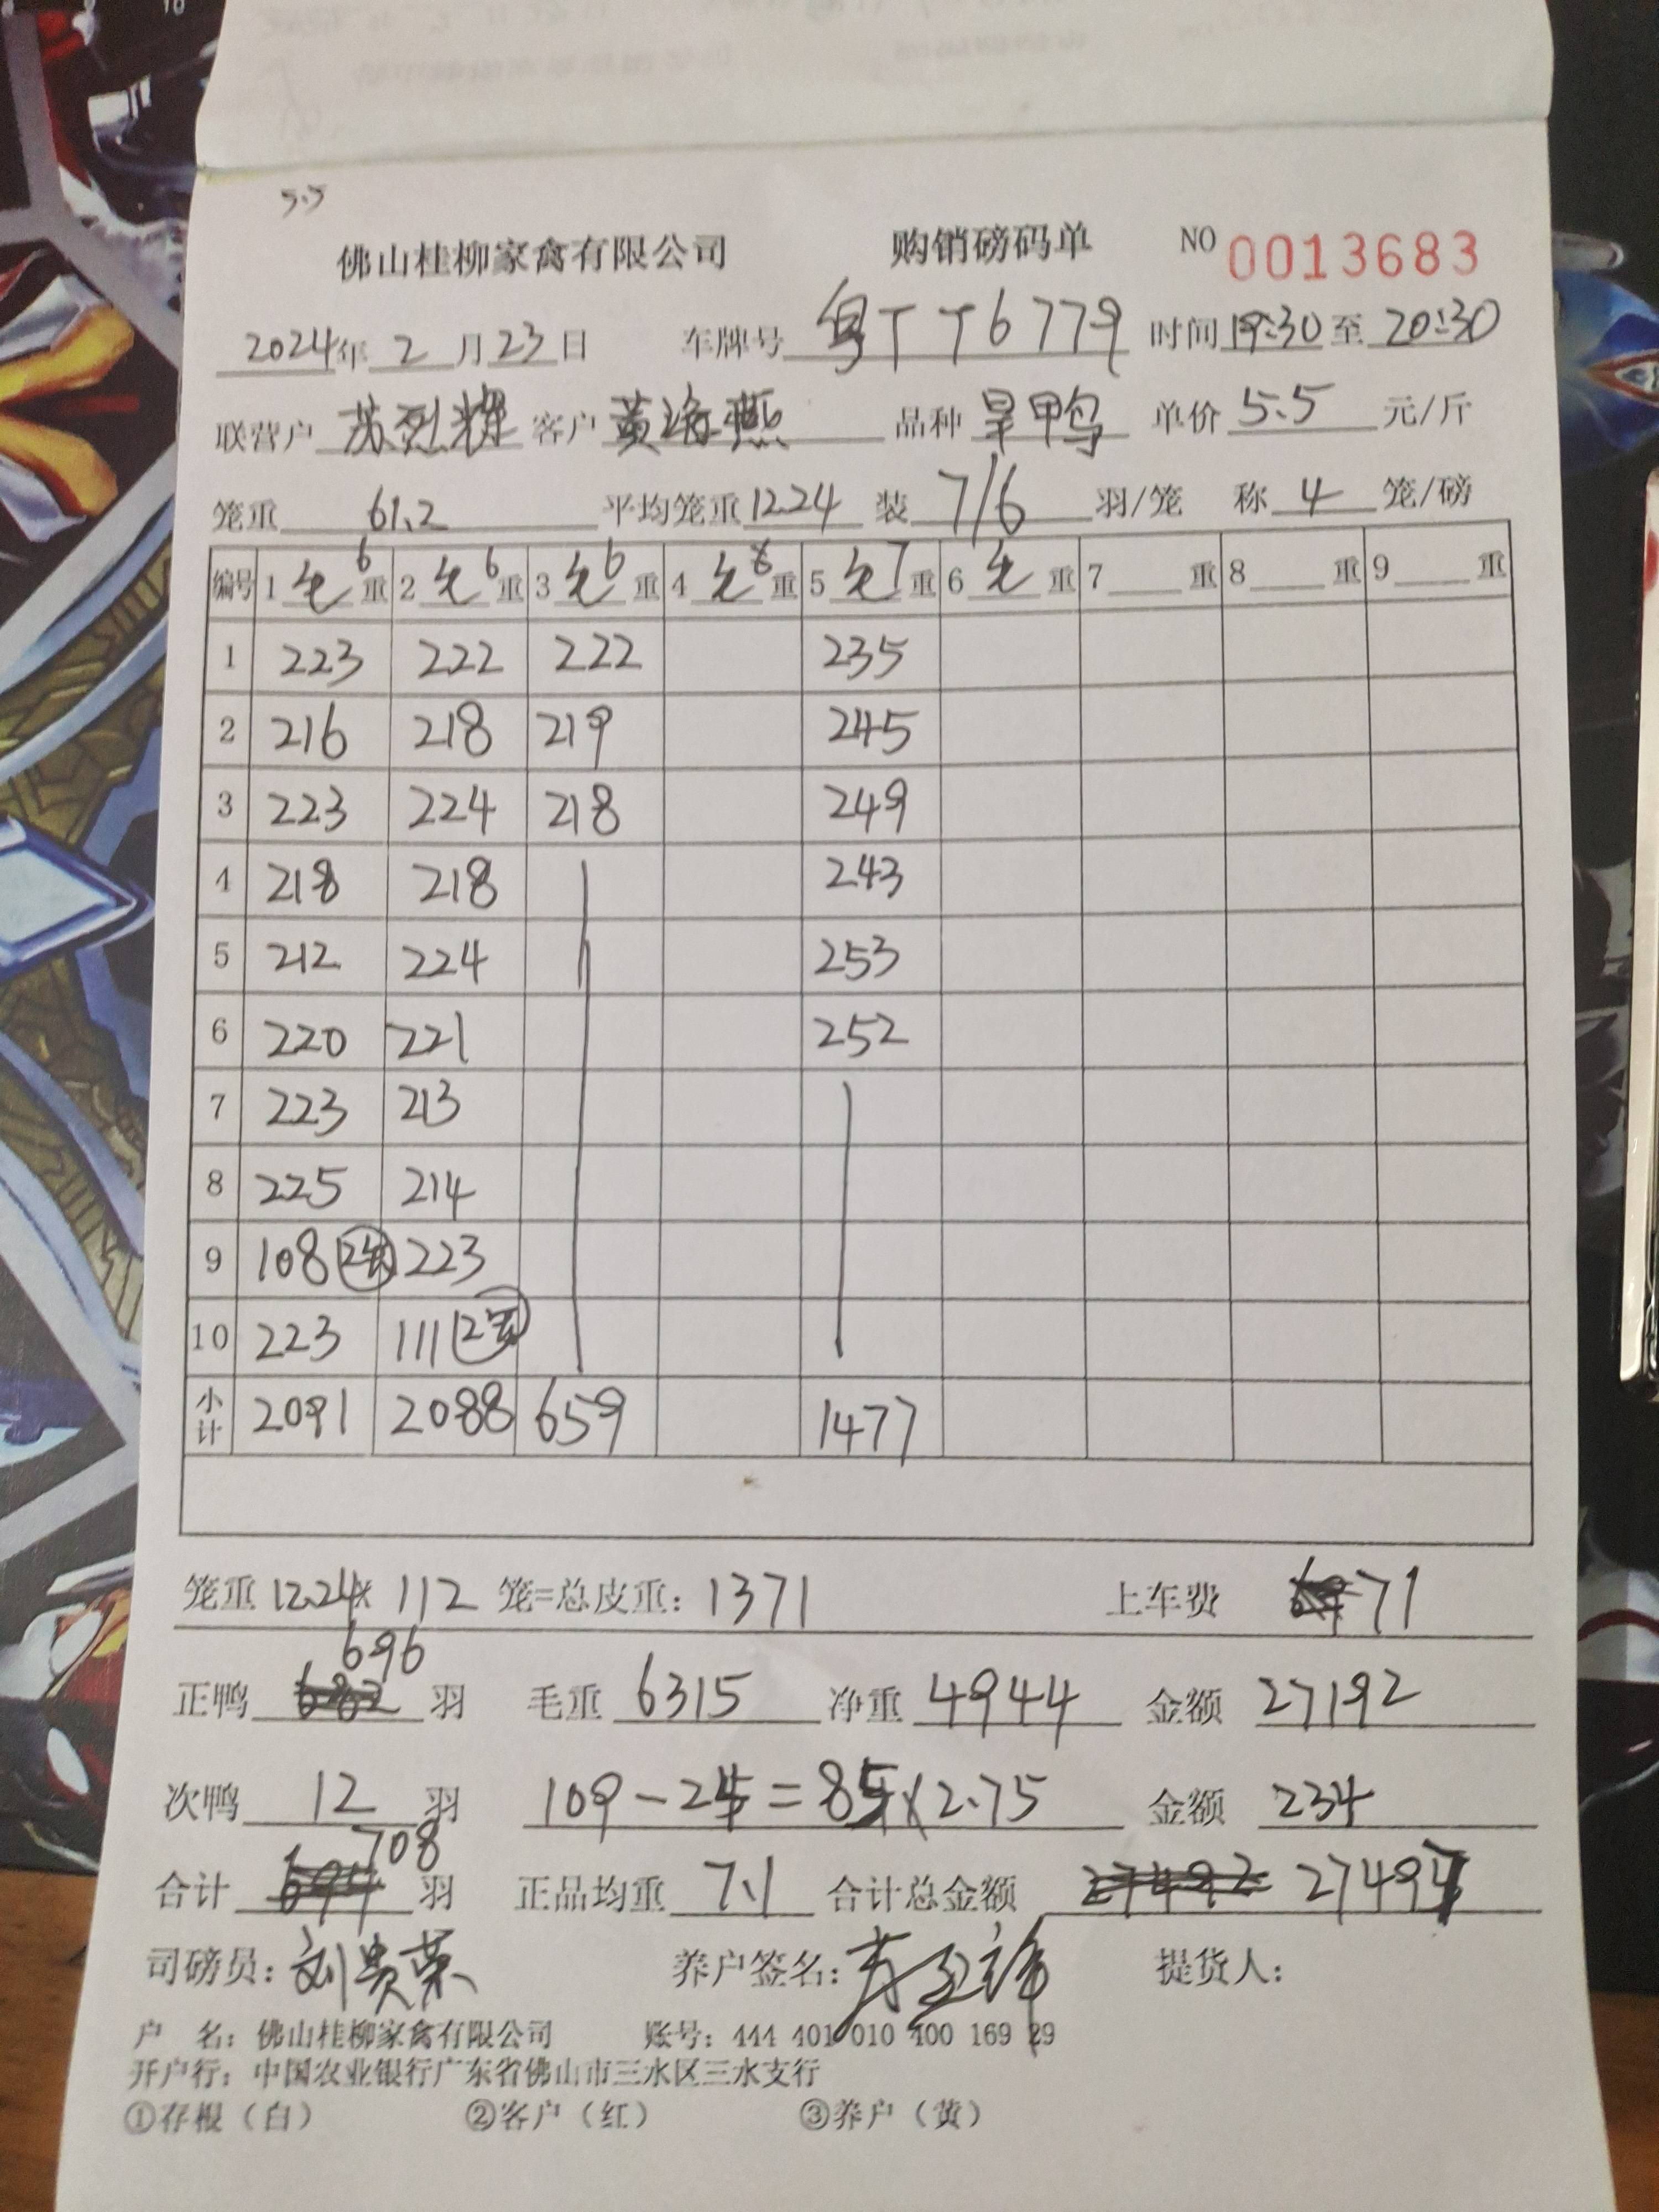 5.5
佛山桂柳家禽有限公司 购销磅码单 NO 0013683
2024年 2 月 23 日 车牌号 粤TT6779 时间 19:30 至 20:30
联营户 苏烈辉 客户 黄海燕 品种 旱鸭 单价 5.5 元/斤
笼重 61.2 平均笼重 12.24 装 7/6 羽/笼 称 4 笼/磅
编号 1 毛6 重 2 毛6 重 3 毛6 重 4 毛 重 5 毛7 重 6 毛 重 7 重 8 重 9 重
1 223 222 222 235
2 216 218 219 245
3 223 224 218 249
4 218 218 243
5 212 224 253
6 220 221 252
7 223 213
8 225 214
9 108 223
10 223 111
小计 2091 2088 659 1477
笼重 12.24× 112 笼=总皮重: 1371 上车费 71
正鸭 696 羽 毛重 6315 净重 4944 金额 27192
次鸭 12 羽 109-24=85×2.75 金额 234
合计 708 羽 正品均重 7.1 合计总金额 27497
司磅员: 刘贵荣 养户签名: 提货人:
户 名: 佛山桂柳家禽有限公司 账号: 444 401 010 400 169 29
开户行: 中国农业银行广东省佛山市三水区三水支行
①存根（白） ②客户（红） ③养户（黄）